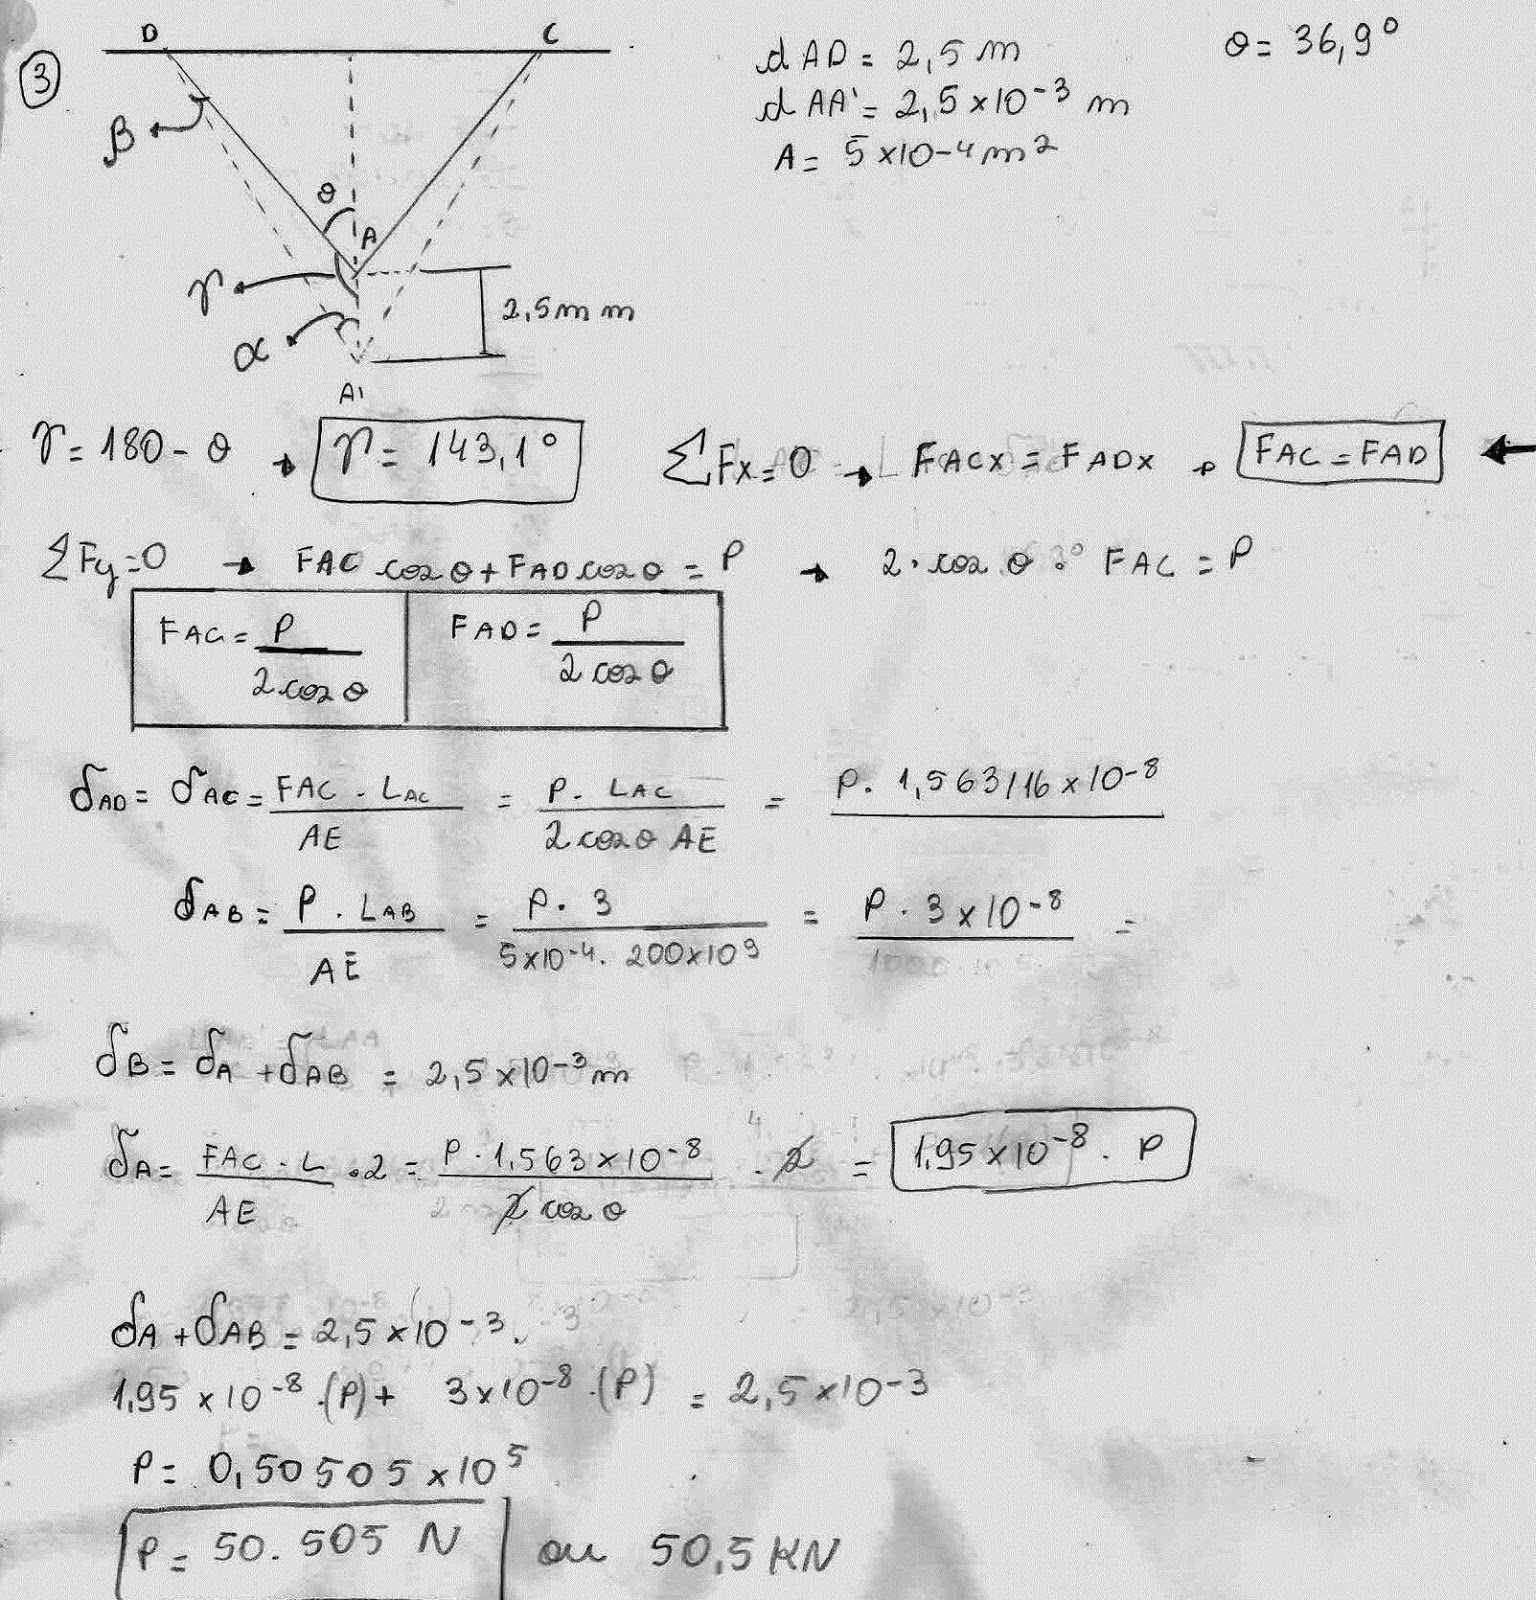 D C
③ dAD = 2,5 m θ = 36,9°
dAA' = 2,5 x 10-3 m
β A = 5 x 10-4 m2
θ
A
γ
2,5 m m
α
A'
γ = 180 - θ → γ = 143,1° ΣFx = 0 → FACX = FADX → FAC = FAD ←
ΣFy = 0 → FAC cos θ + FAD cos θ = P → 2 · cos θ FAC = P
FAC = P / 2 cos θ FAD = P / 2 cos θ
δAD = δAC = FAC . LAC / AE = P. LAC / 2 cos θ AE = P. 1,563116 x 10-8
δAB = P . LAB / AE = P. 3 / 5x10-4. 200x109 = P . 3 x 10-8 =
δB = δA + δAB = 2,5 x 10-3 m
δA = FAC . L / AE . 2 = P . 1,563 x 10-8 / 2 cos θ . 2 = 1,95 x 10-8 . P
δA + δAB = 2,5 x 10-3.
1,95 x 10-8 .(P) + 3 x 10-8 .(P) = 2,5 x 10-3
P = 0,50505 x 105
P = 50.505 N ou 50,5 KN